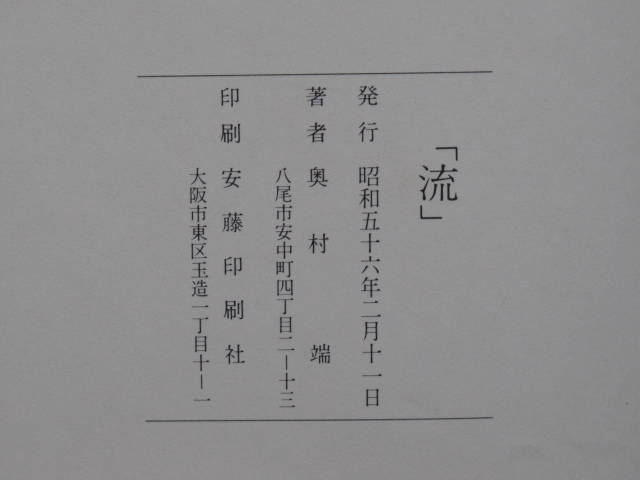 「流」
発行 昭和五十六年二月十一日
著者 奥村 端
八尾市安中町四丁目二―十三
印刷 安藤印刷社
大阪市東区玉造一丁目十―一